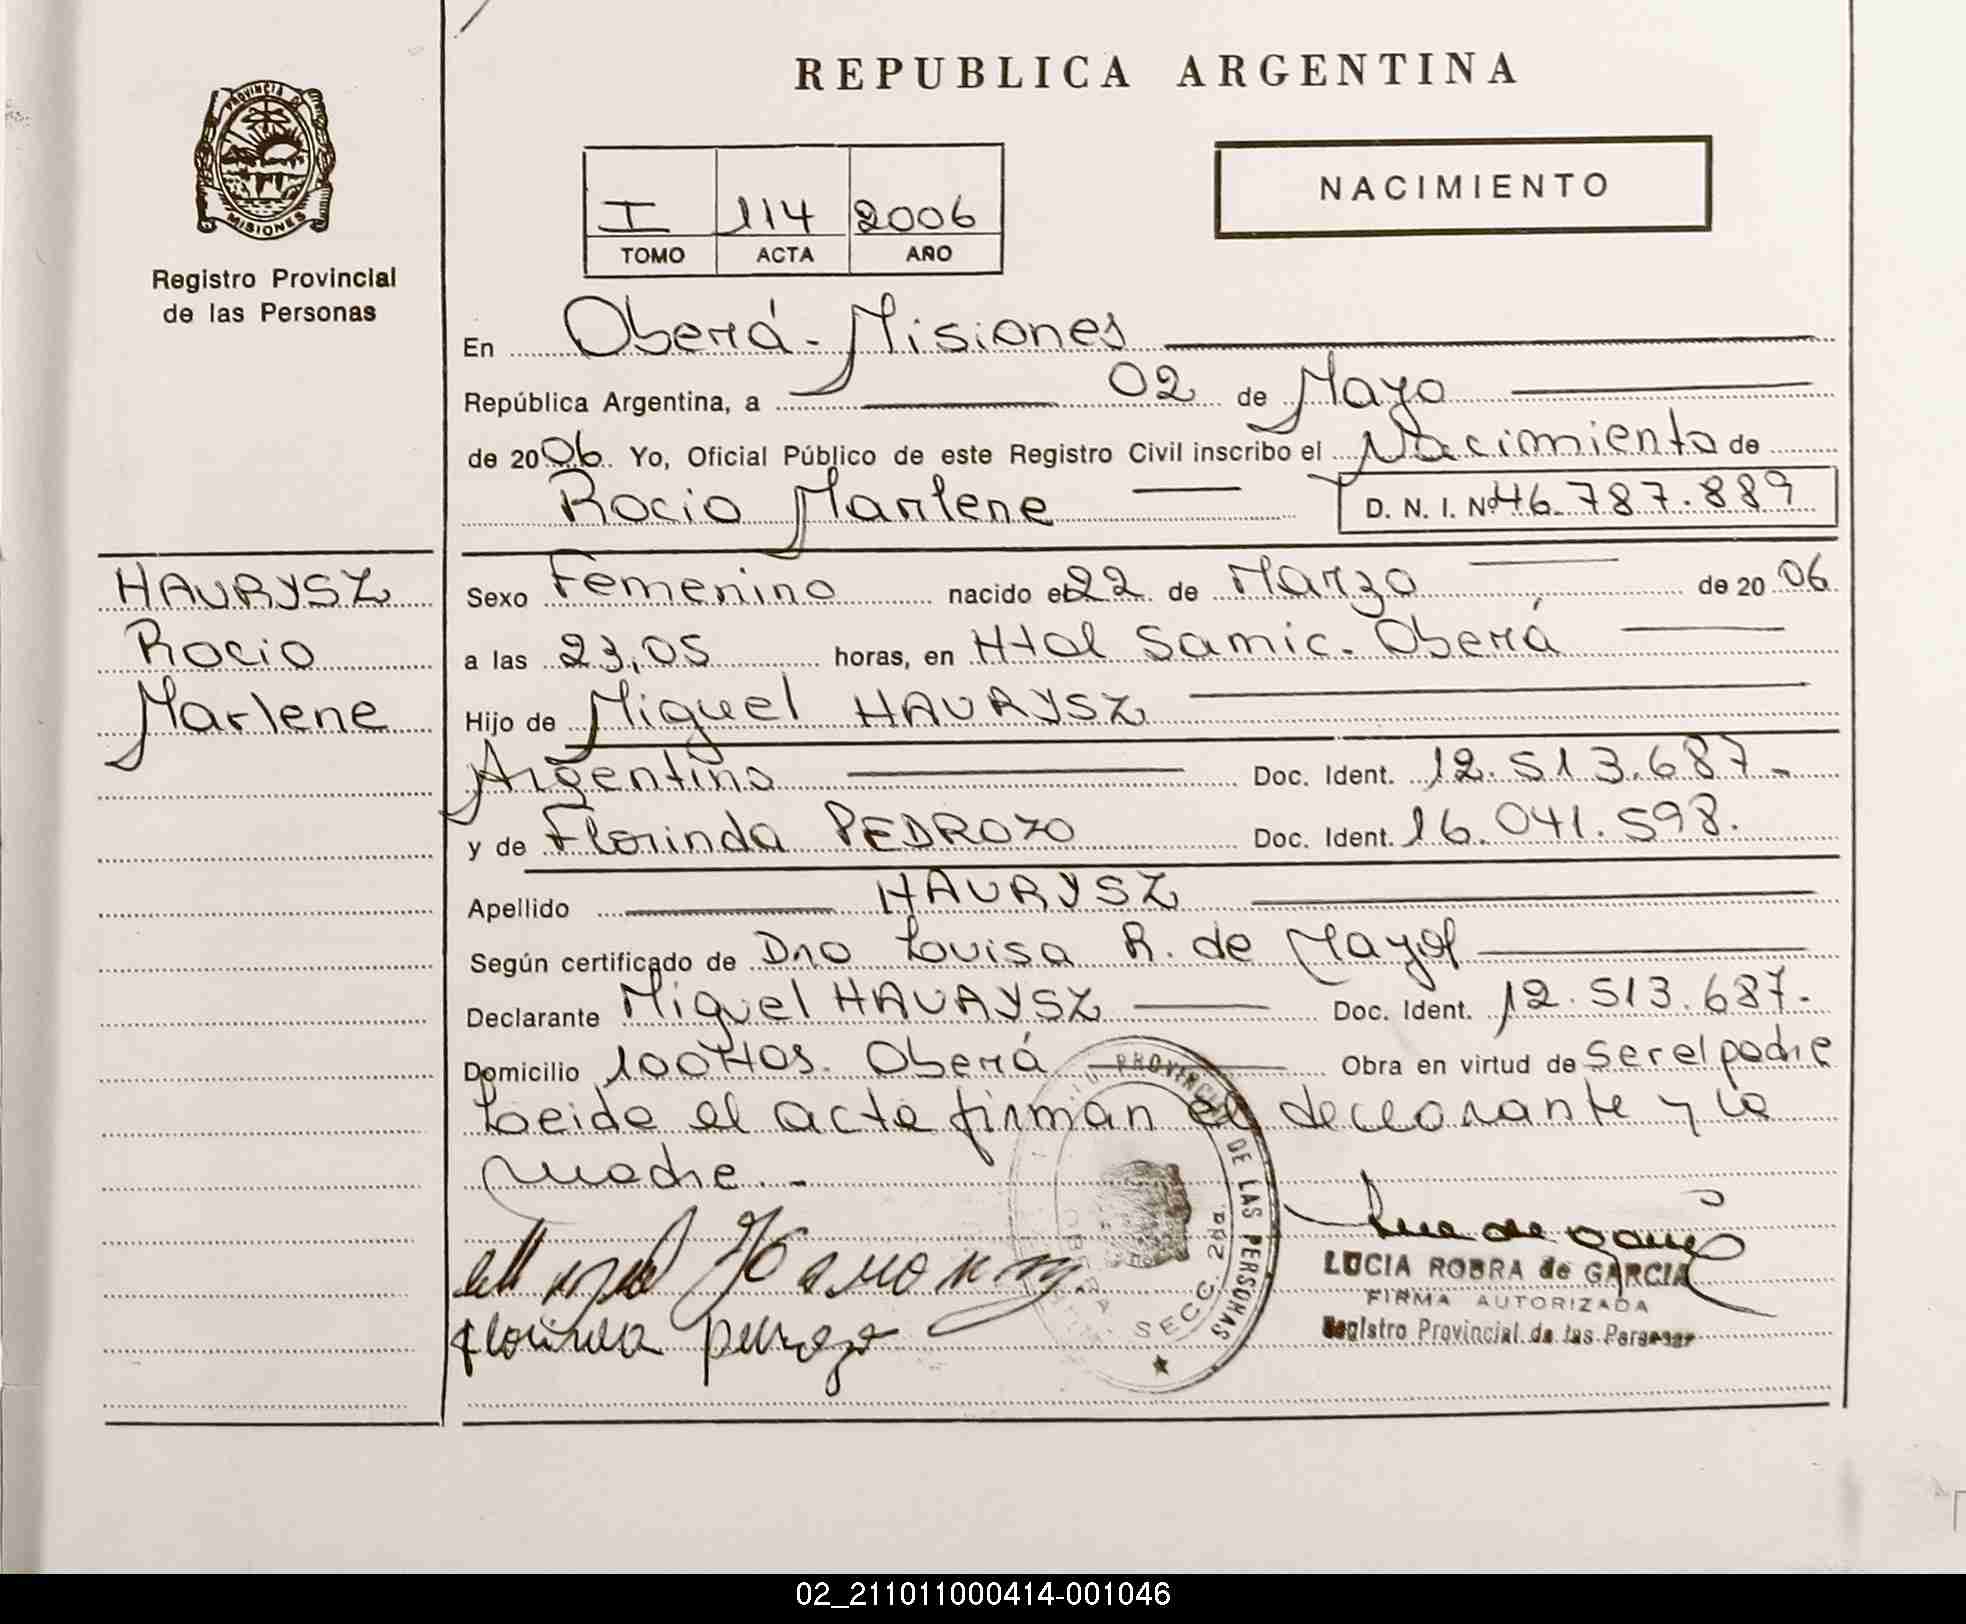 REPUBLICA ARGENTINA
PROVINCIA DE
MISIONES
Registro Provincial
de las Personas
NACIMIENTO
I 114 2006
TOMO ACTA AÑO
En Oberá - Misiones
República Argentina, a 02 de Mayo
de 2006 Yo, Oficial Público de este Registro Civil inscribo el Nacimiento de
Rocio Marlene D. N. I. Nº 46.787.889
HAURYSZ
Rocio
Marlene
Sexo Femenino nacido el 22 de Marzo de 2006
a las 23,05 horas, en Htal Samic. Oberá
Hijo de Miguel HAURYSZ
Argentino Doc. Ident. 12.513.687.-
y de Florinda PEDROZO Doc. Ident. 16.041.598.
Apellido HAURYSZ
Según certificado de Dra Louisa R. de Mayol
Declarante Miguel HAURYSZ Doc. Ident. 12.513.687.-
Domicilio 100 Has. Oberá Obra en virtud de ser el padre
Leida el acta firman el declarante y la
madre.-
PROVINCIAL DE LAS PERSONAS
OBERA
SECC. 2da.
LUCIA ROBRA de GARCIA
FIRMA AUTORIZADA
Registro Provincial de las Personas
Florinda Pedrozo
02_211011000414-001046